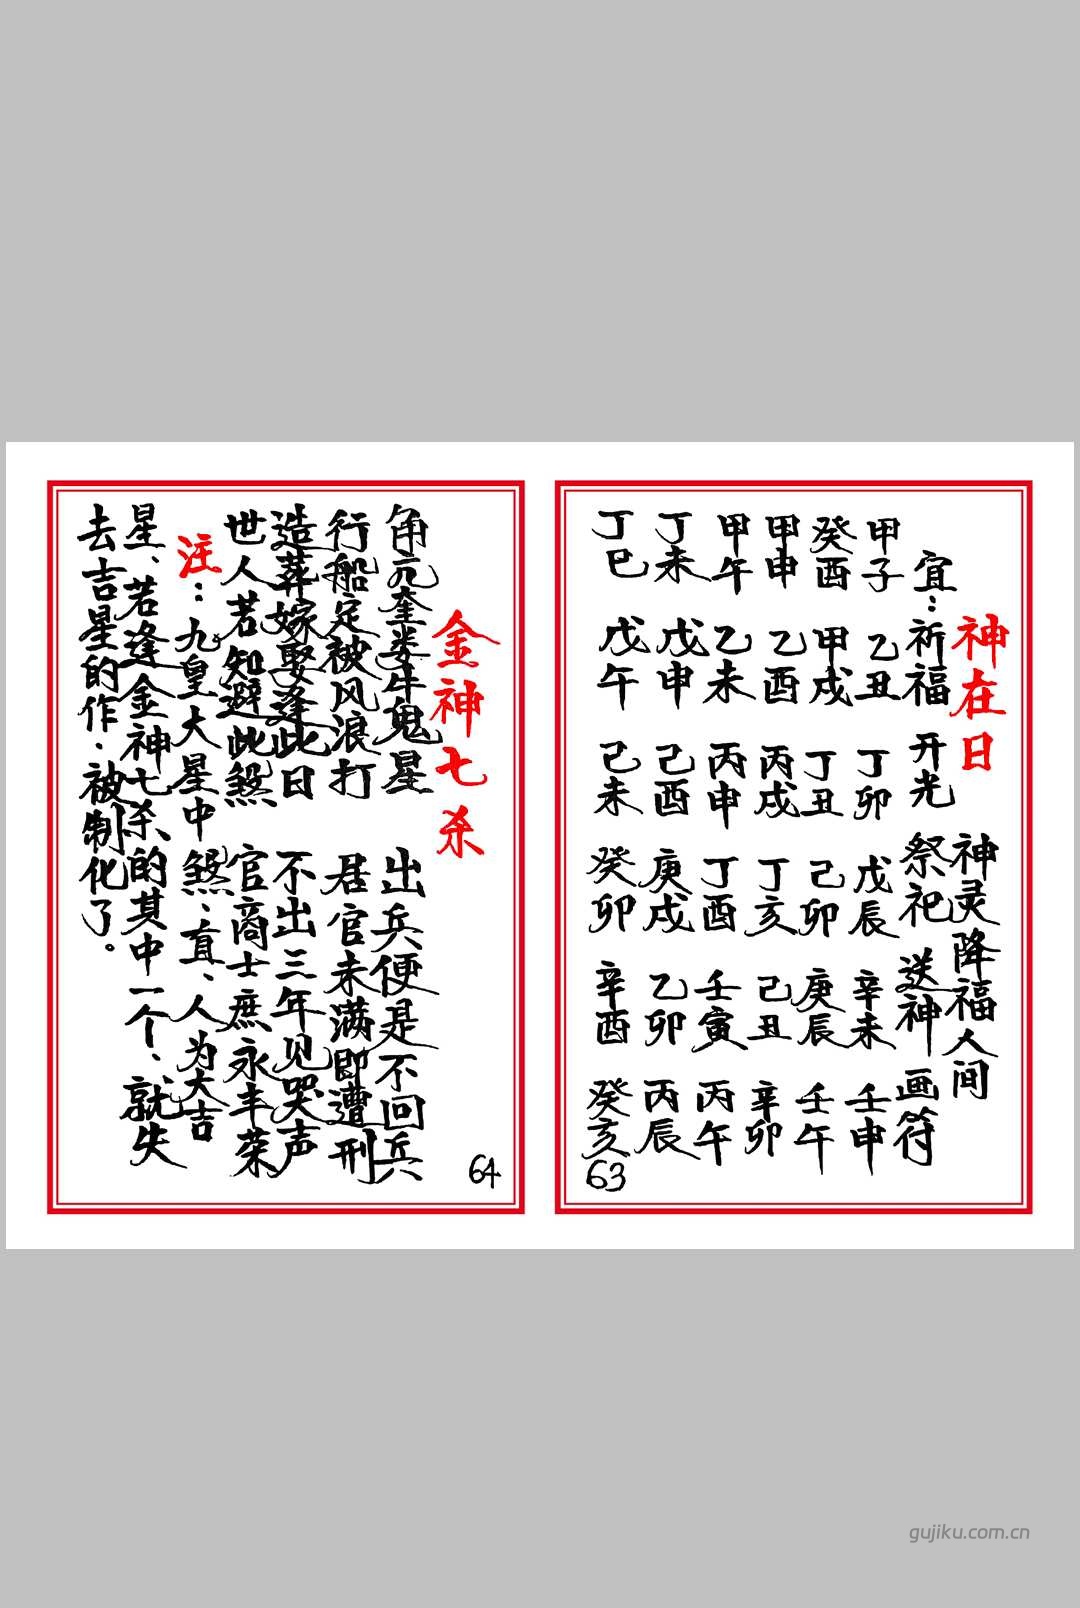 神在日 神灵降福人间
宜：祈福 开光 祭祀 送神 画符
甲子 乙丑 丁卯 戊辰 辛未 壬申
癸酉 甲戌 丁丑 己卯 庚辰 壬午
甲申 乙酉 丙戌 丁亥 己丑 辛卯
甲午 乙未 丙申 丁酉 壬寅 丙午
丁未 戊申 己酉 庚戌 乙卯 丙辰
丁巳 戊午 己未 癸卯 辛酉 癸亥
63
金神七杀
角亢奎娄牛鬼星 出兵便是不回兵
行船定被风浪打 居官未满即遭刑
造葬嫁娶逢此日 不出三年见哭声
世人若知避此煞 官商士庶永丰荣
注：九皇大星中煞、直、人为大吉
星、若逢金神七杀的其中一个、就失
去吉星的作.被制化了。
64
gujiku.com.cn